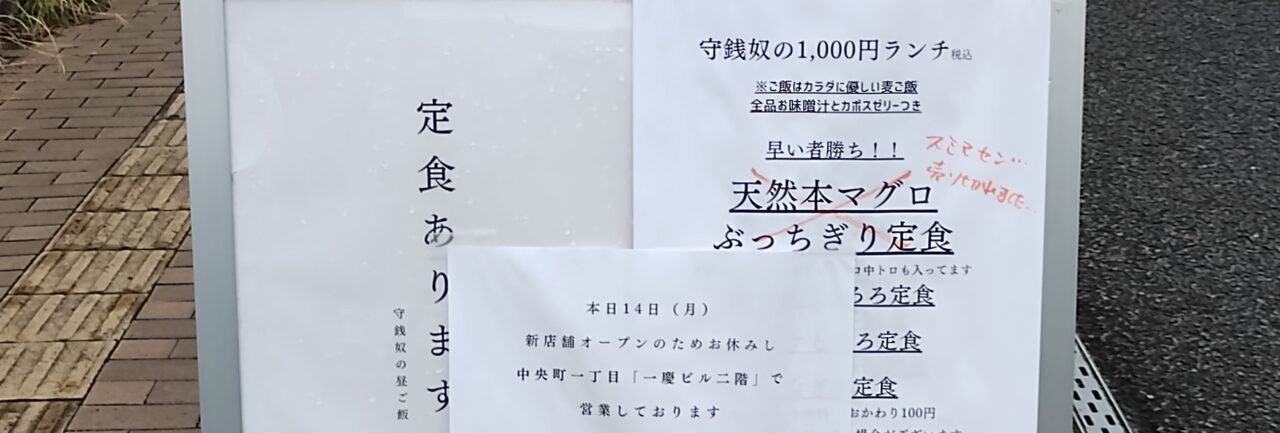 定食あります
守銭奴の昼ご飯
守銭奴の1,000円ランチ税込
※ご飯はカラダに優しい麦ご飯
全品お味噌汁とカボスゼリーつき
早い者勝ち！！
スミマセン…
売り切れました…
天然本マグロ
ぶっちぎり定食
中トロも入ってます
ろろ定食
ろ定食
定食
おかわり100円
本日14日（月）
新店舗オープンのためお休みし
中央町一丁目「一慶ビル二階」で
営業しております